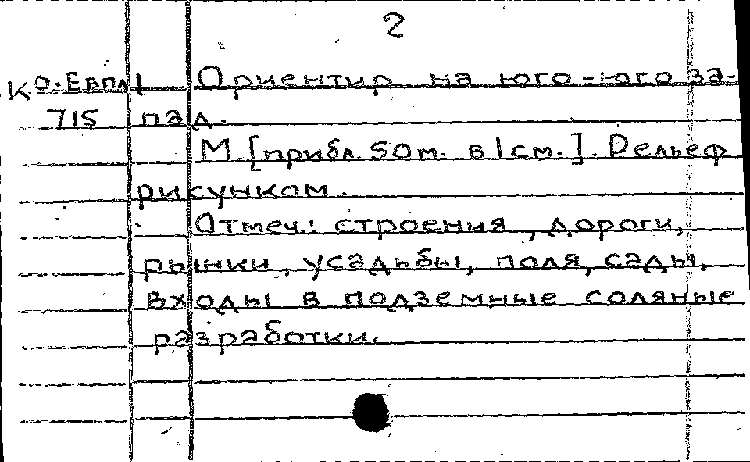 2
Ко. Евпл Ориентир на юго-юго за-
715 пад.
М [прибл. 50м. в 1см.]. Рельеф
рисунком.
Отмеч.: строения, дороги,
рынки, усадьбы, поля, сады,
входы в подземные соляные
разработки.